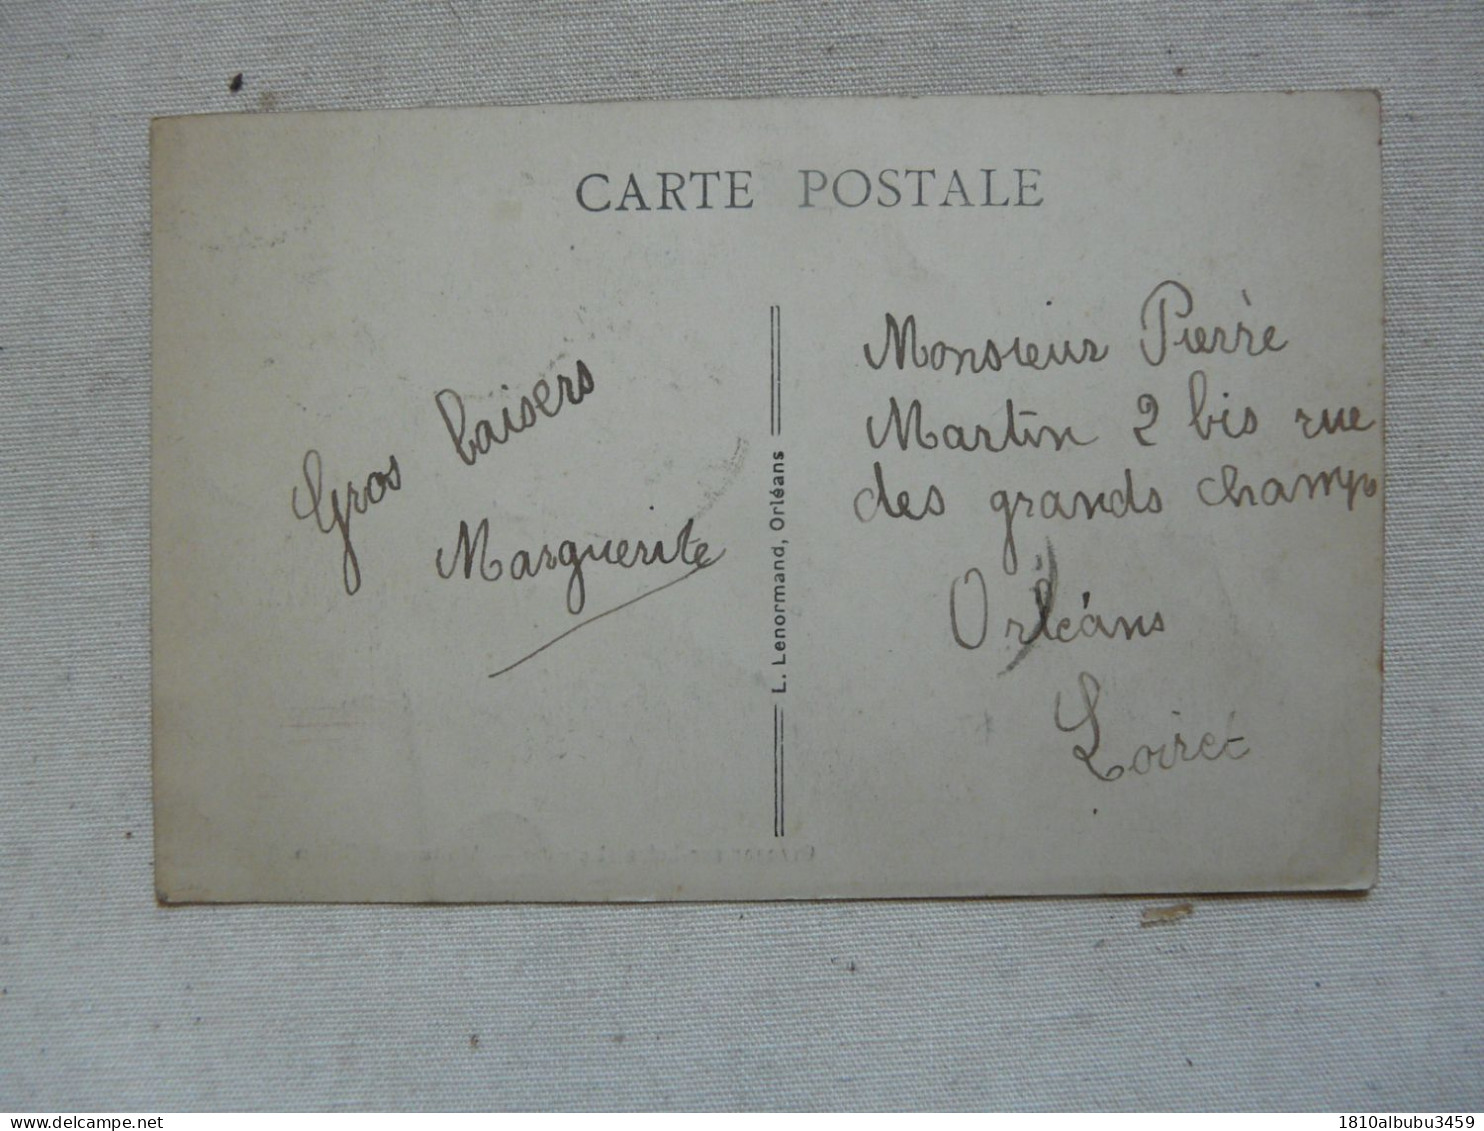 CARTE POSTALE
Gros baisers
Marguerite
L. Lenormand, Orléans
Monsieur Pierre
Martin 2 bis rue
des grands champs
Orléans
Loiret
www.delcampe.net
1810albubu3459